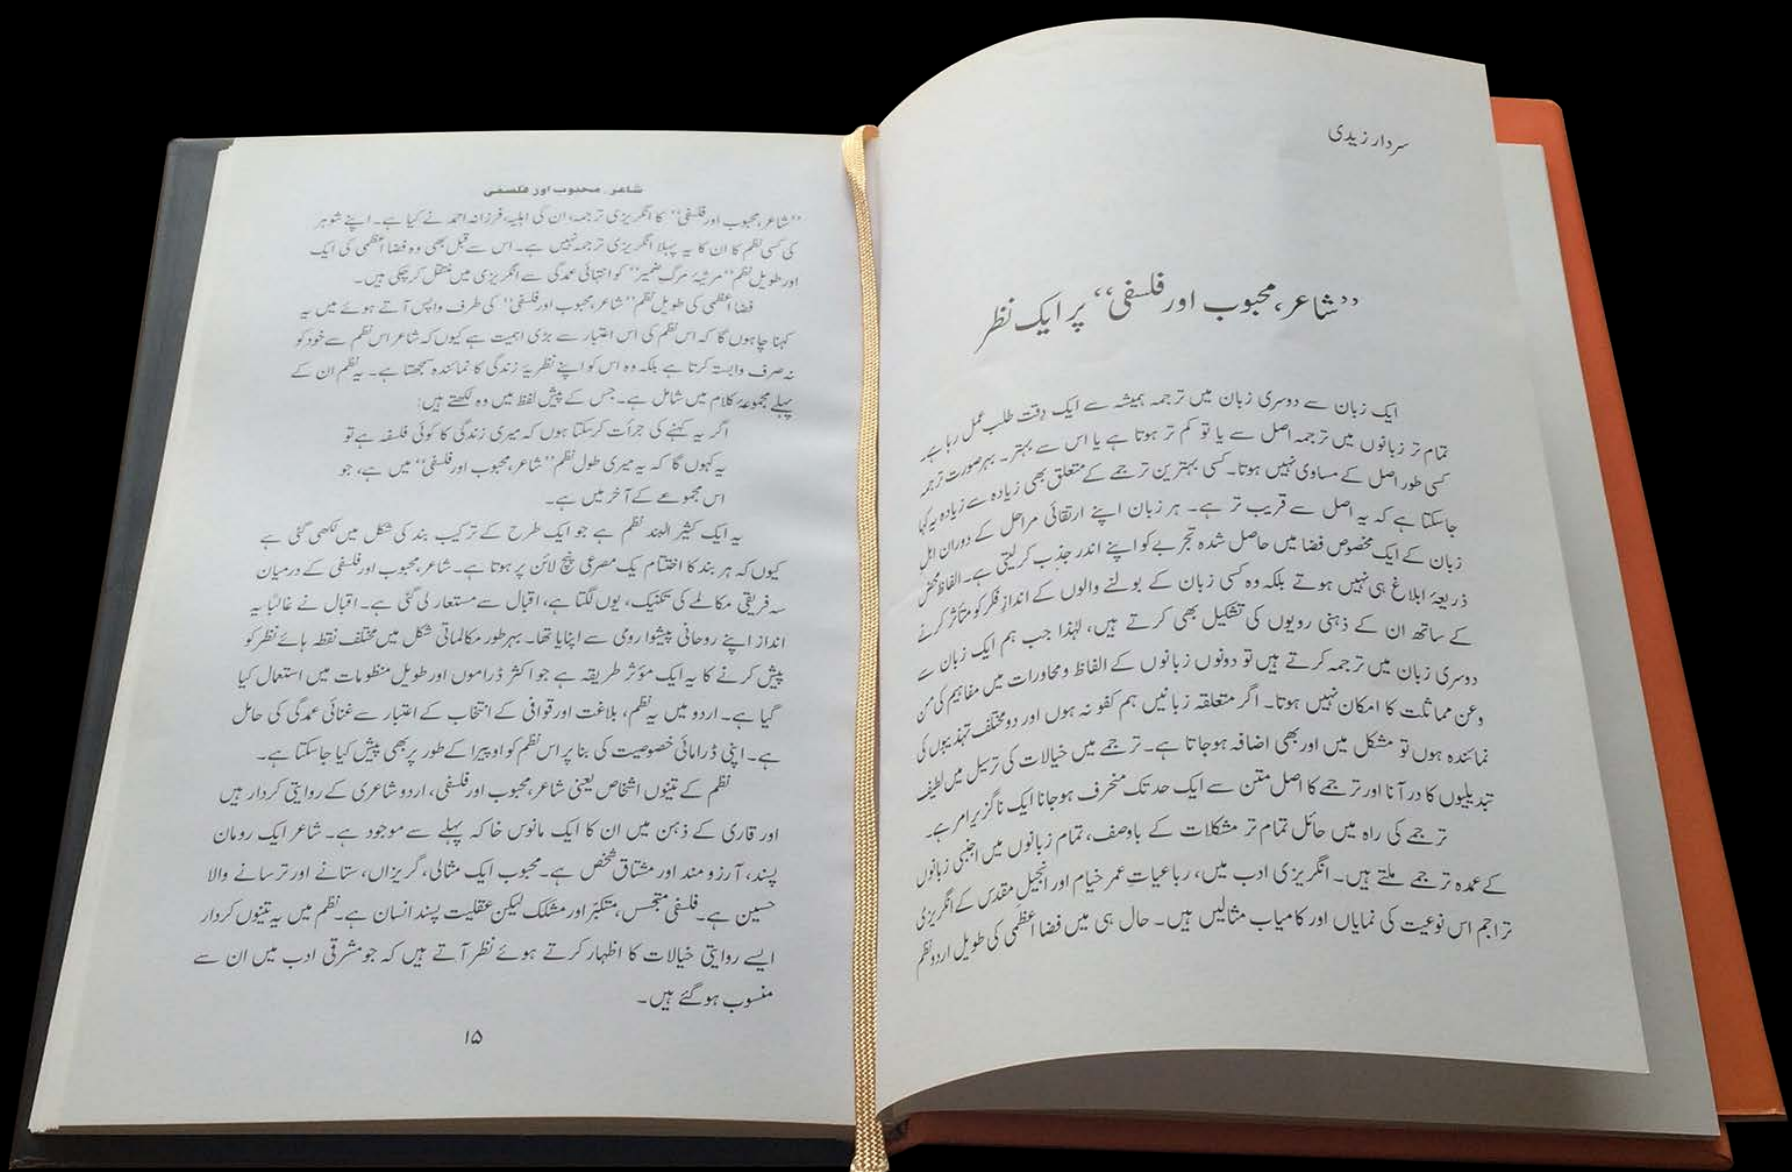 سردار زیدی
’’شاعر، محبوب اور فلسفی‘‘ پر ایک نظر
ایک زبان سے دوسری زبان میں ترجمہ ہمیشہ سے ایک دقت طلب عمل رہا ہے۔
تمام تر زبانوں میں ترجمہ اصل سے یا تو کم تر ہوتا ہے یا اس سے بہتر۔ بہرصورت ترجمہ
کسی طور اصل کے مساوی نہیں ہوتا۔ کسی بہترین ترجمے کے متعلق بھی زیادہ سے زیادہ یہ کہا
جاسکتا ہے کہ یہ اصل سے قریب تر ہے۔ ہر زبان اپنے ارتقائی مراحل کے دوران اہل
زبان کے ایک مخصوص فضا میں حاصل شدہ تجربے کو اپنے اندر جذب کرلیتی ہے۔ الفاظ محض
ذریعۂ ابلاغ ہی نہیں ہوتے بلکہ وہ کسی زبان کے بولنے والوں کے اندازِ فکر کو متاثر کرنے
کے ساتھ ان کے ذہنی رویوں کی تشکیل بھی کرتے ہیں، لہٰذا جب ہم ایک زبان سے
دوسری زبان میں ترجمہ کرتے ہیں تو دونوں زبانوں کے الفاظ و محاورات میں مفاہیم کی من
و عن مماثلت کا امکان نہیں ہوتا۔ اگر متعلقہ زبانیں ہم کفو نہ ہوں اور دو مختلف تہذیبوں کی
نمائندہ ہوں تو مشکل میں اور بھی اضافہ ہوجاتا ہے۔ ترجمے میں خیالات کی ترسیل میں لطیف
تبدیلیوں کا در آنا اور ترجمے کا اصل متن سے ایک حد تک منحرف ہوجانا ایک ناگزیر امر ہے۔
ترجمے کی راہ میں حائل تمام تر مشکلات کے باوصف، تمام زبانوں میں اجنبی زبانوں
کے عمدہ ترجمے ملتے ہیں۔ انگریزی ادب میں، رباعیاتِ عمر خیام اور انجیلِ مقدس کے انگریزی
تراجم اس نوعیت کی نمایاں اور کامیاب مثالیں ہیں۔ حال ہی میں فضا اعظمی کی طویل اردو نظم
شاعر، محبوب اور فلسفی
’’شاعر، محبوب اور فلسفی‘‘ کا انگریزی ترجمہ، ان کی اہلیہ، فرزانہ احمد نے کیا ہے۔ اپنے شوہر
کی کسی نظم کا ان کا یہ پہلا انگریزی ترجمہ نہیں ہے۔ اس سے قبل بھی وہ فضا اعظمی کی ایک
اور طویل نظم ’’مرثیۂ مرگِ ضمیر‘‘ کو انتہائی عمدگی سے انگریزی میں منتقل کرچکی ہیں۔
فضا اعظمی کی طویل نظم ’’شاعر، محبوب اور فلسفی‘‘ کی طرف واپس آتے ہوئے میں یہ
کہنا چاہوں گا کہ اس نظم کی اس اعتبار سے بڑی اہمیت ہے کیوں کہ شاعر اس نظم سے خود کو
نہ صرف وابستہ کرتا ہے بلکہ وہ اس کو اپنے نظریۂ زندگی کا نمائندہ سمجھتا ہے۔ یہ نظم ان کے
پہلے مجموعۂ کلام میں شامل ہے۔ جس کے پیش لفظ میں وہ لکھتے ہیں:
اگر یہ کہنے کی جرأت کرسکتا ہوں کہ میری زندگی کا کوئی فلسفہ ہے تو
یہ کہوں گا کہ یہ میری طول نظم ’’شاعر، محبوب اور فلسفی‘‘ میں ہے، جو
اس مجموعے کے آخر میں ہے۔
یہ ایک کثیر البند نظم ہے جو ایک طرح کے ترکیب بند کی شکل میں لکھی گئی ہے
کیوں کہ ہر بند کا اختتام یک مصرعی پنچ لائن پر ہوتا ہے۔ شاعر، محبوب اور فلسفی کے درمیان
سہ فریقی مکالمے کی تکنیک، یوں لگتا ہے، اقبال سے مستعار لی گئی ہے۔ اقبال نے غالباً یہ
انداز اپنے روحانی پیشوا رومی سے اپنایا تھا۔ بہرطور مکالماتی شکل میں مختلف نقطہ ہائے نظر کو
پیش کرنے کا یہ ایک مؤثر طریقہ ہے جو اکثر ڈراموں اور طویل منظومات میں استعمال کیا
گیا ہے۔ اردو میں یہ نظم، بلاغت اور قوافی کے انتخاب کے اعتبار سے غنائی عمدگی کی حامل
ہے۔ اپنی ڈرامائی خصوصیت کی بنا پر اس نظم کو اوپیرا کے طور پر بھی پیش کیا جاسکتا ہے۔
نظم کے تینوں اشخاص یعنی شاعر، محبوب اور فلسفی، اردو شاعری کے روایتی کردار ہیں
اور قاری کے ذہن میں ان کا ایک مانوس خاکہ پہلے سے موجود ہے۔ شاعر ایک رومان
پسند، آرزو مند اور مشتاق شخص ہے۔ محبوب ایک مثالی، گریزاں، ستانے اور ترسانے والا
حسین ہے۔ فلسفی متجسس، متکبّر اور مشکک لیکن عقلیت پسند انسان ہے۔ نظم میں یہ تینوں کردار
ایسے روایتی خیالات کا اظہار کرتے ہوئے نظر آتے ہیں کہ جو مشرقی ادب میں ان سے
منسوب ہوگئے ہیں۔
۱۵